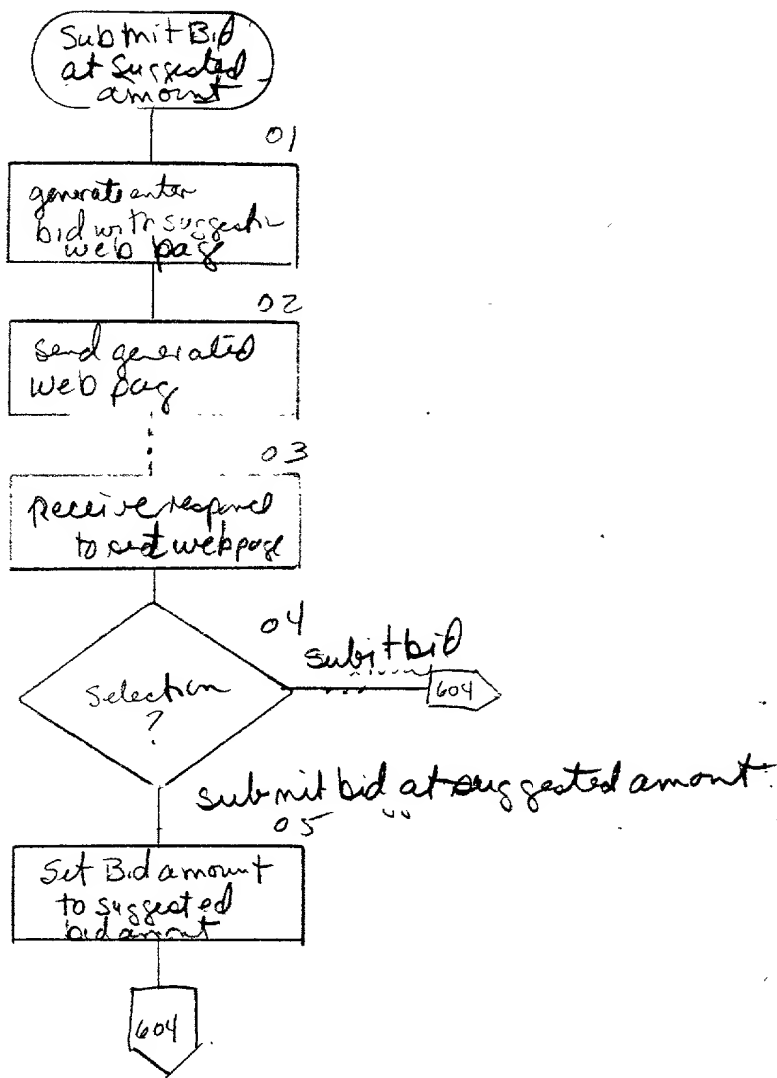 Submit Bid
at Suggested
amount
01
generate enter
bid with suggestion
web pag
02
send generated
web pag
03
receive respons
to sent web page
04
subit bid
Selection
?
604
submit bid at suggested amont
05
Set Bid amount
to suggested
bid amont
604